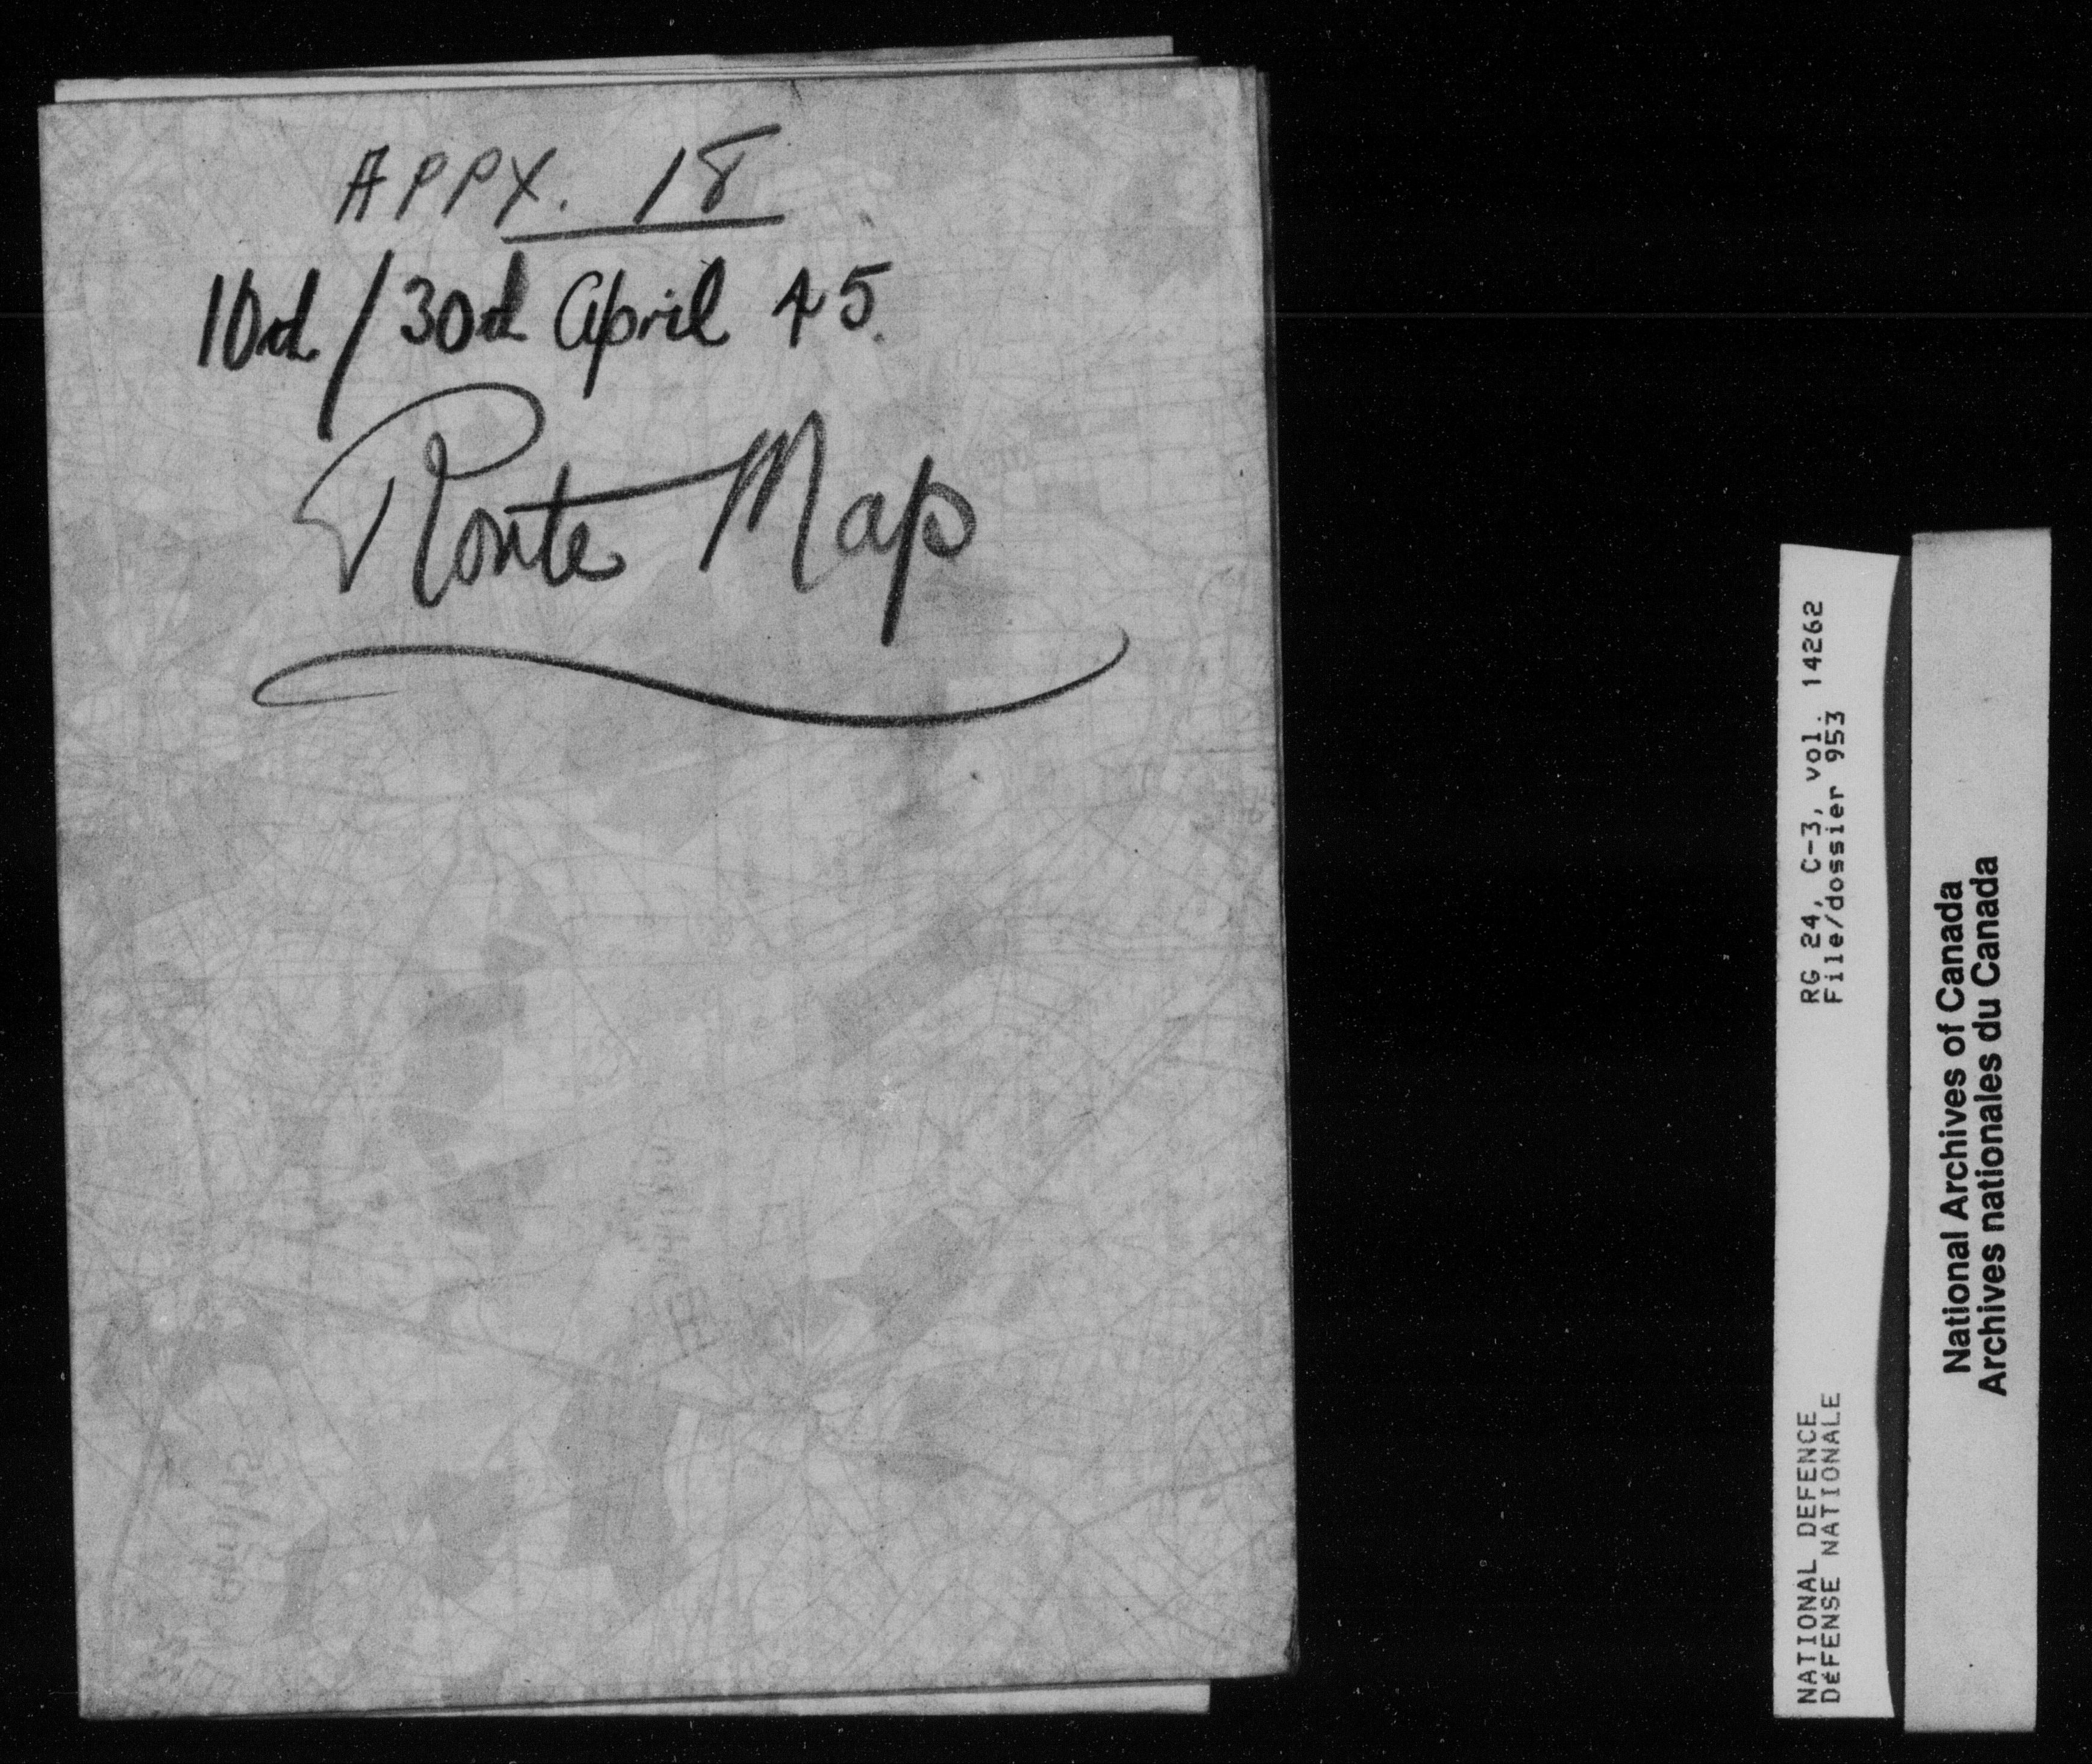 APPX. 18
10rd/30rd April 45.
Route Map
RG 24, C-3, vol. 14262
File/dossier 953
NATIONAL DEFENCE
DéFENSE NATIONALE
National Archives of Canada
Archives nationales du Canada